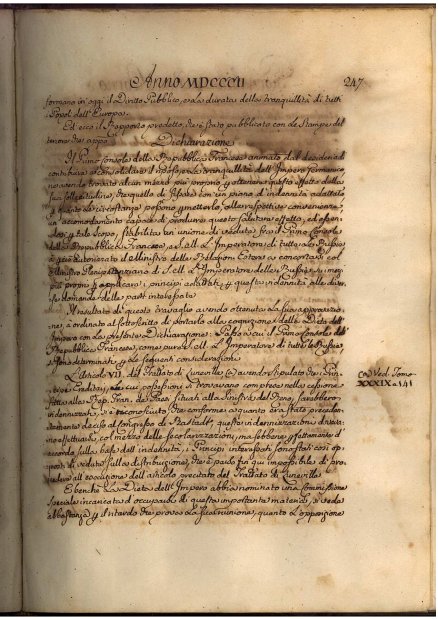 Anno MDCCCII
247
formano in oggi il Diritto Pubblico, e la durata della tranquillità di tutti
Popoli dell'Europa.
Ed ecco il Rapporto predetto, che è stato pubblicato con le Stampe del
tenore che
Dichiarazione
Il Primo Console della Repubblica Francese animato dal desiderio di
contribuire a consolidare il riposo, e la tranquillità dell'Impero Germanico,
non avendo trovato alcun mezzo più proprio ad ottenere questo effetto della
sua sollecitudine, che quella di fissare con un piano d'indennità adattato
quanto le circostanze possono permetterlo, alle rispettive convenienze,
un accomodamento capace di produrre questo salutare effetto, ed essen-
dosi a tale scopo, stabilita un'unione di vedute fra il Primo Console
della Repubblica Francese, e S. M. l'Imperatore di tutte le Russie
autorizato il Ministro delle Relazioni Estere a concertarsi col
Ministro Plenipotenziario di S. M. l'Imperatore delle Russie, su i mez-
zi più proprj i principj adattati questa indennità alle diver-
se domande delle parti interessate
Il risultato di questo travaglio avendo ottenuta la sua approvazio-
ne, a ordinato al sottoscritto di portarlo alla cognizione della Dieta dell'
Impero con la presente Dichiarazione: Passo a cui il Primo Console della
Repubblica Francese, come pure S. M. l'Imperatore di tutte le Russie,
si sono determinati le seguenti considerazioni
L'Articolo VII. del Trattato di Luneville (a) avendo stipulato che i Prin-
cipi Ereditarj, le cui possessioni si trovavano comprese nella cessione
fatta alla Rep. Fran. dei Paesi situati alla sinistra del Reno, sarebbero
indennizzati, si è riconosciuto che conforme a quanto era stato preceden-
temente deciso al Congresso di Rastadt, questa indennizzazione doveva
effettuarsi col mezzo delle secolarizzazioni, ma sebbene perfettamente d'
accordo sulla base dell'indennità, i Principi interessati sono stati così op-
posti di vedute sulla distribuzione, che è parso fin qui impossibile di pro-
cedere all'esecuzione dell'articolo precitato del Trattato di Luneville.
E benchè la Dieta dell'Impero abbia nominato una Commissione
speciale incaricata d'occuparsi di questa importante materia, si vede
abbastanza il ritardo che prova la sua riunione, quanto l'opposizione
(a) Ved. Tomo
XXXIX a 141